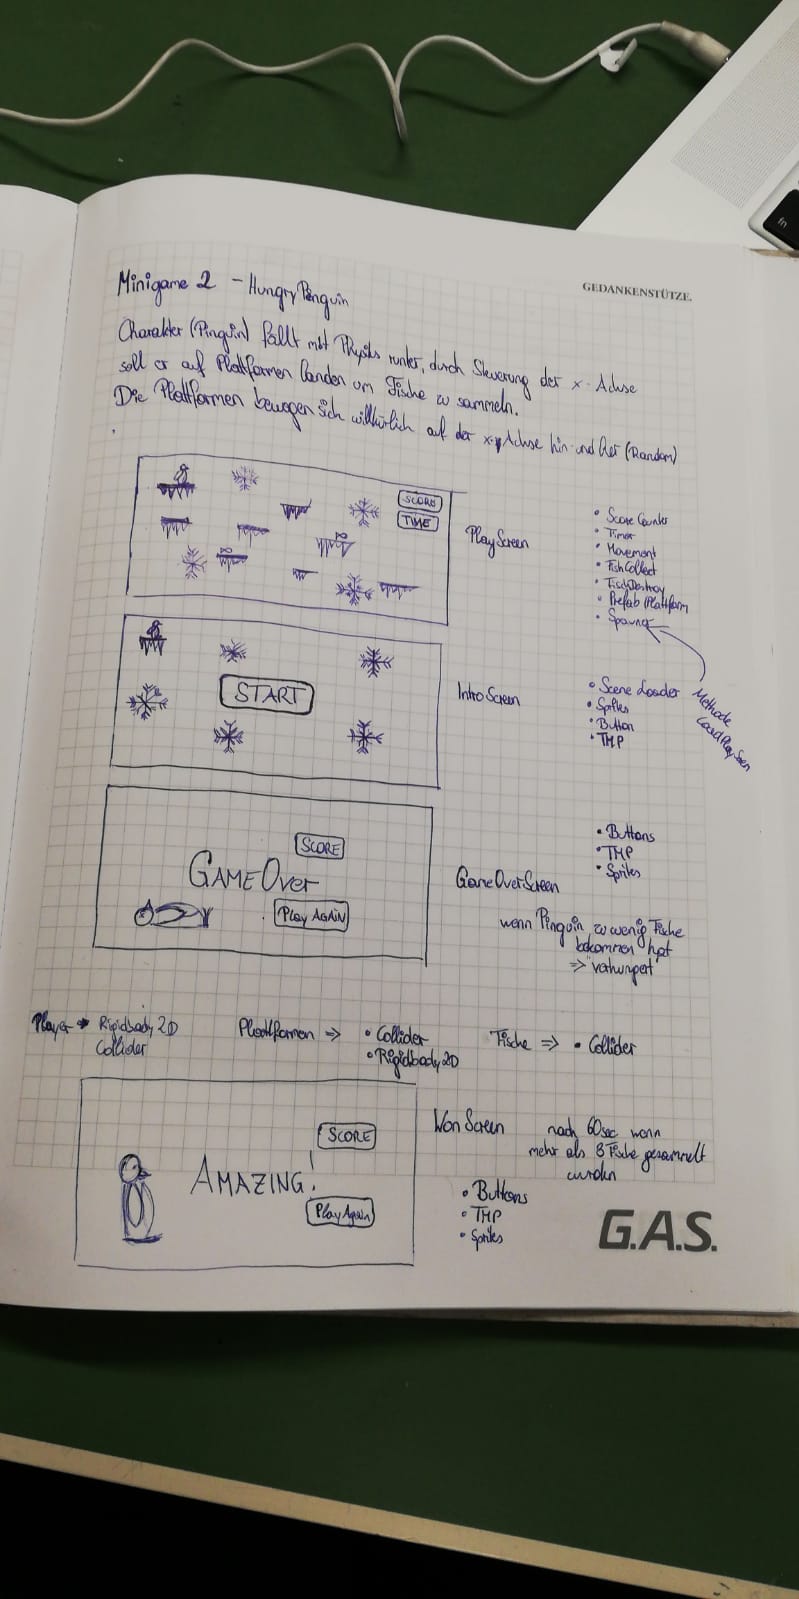 fn
GEDANKENSTÜTZE.
Minigame 2 - Hungry Penguin
Charakter (Pinguin) fällt mit Physics runter, durch Steuerung der x-Achse
soll er auf Plattformen landen um Fische zu sammeln.
Die Plattformen bewegen sich willkürlich auf der x-Achse hin und her (Random)
SCORE
TIME
PlayScreen
• Score Counter
• Timer
• Movement
• FishCollect
• FischDestroy
• Prefab (Plattform
• Spawner
START
IntroScreen
• Scene Loader
• Sprites
• Button
• TMP
Methode
LoadPlay
SCORE
GAMEOver
Play AGAIN
GameOverScreen
• Buttons
• TMP
• Sprites
wenn Pinguin zu wenig Fische
bekommen hat
=> "verhungert"
Player → Rigidbody2D
Collider
Plattformen => • Collider
• Rigidbody2D
Fische => • Collider
SCORE
AMAZING!
Play Again
Won Screen
nach 60sec wenn
mehr als 8 Fische gesammelt
wurden
• Buttons
• TMP
• Sprites
G.A.S.